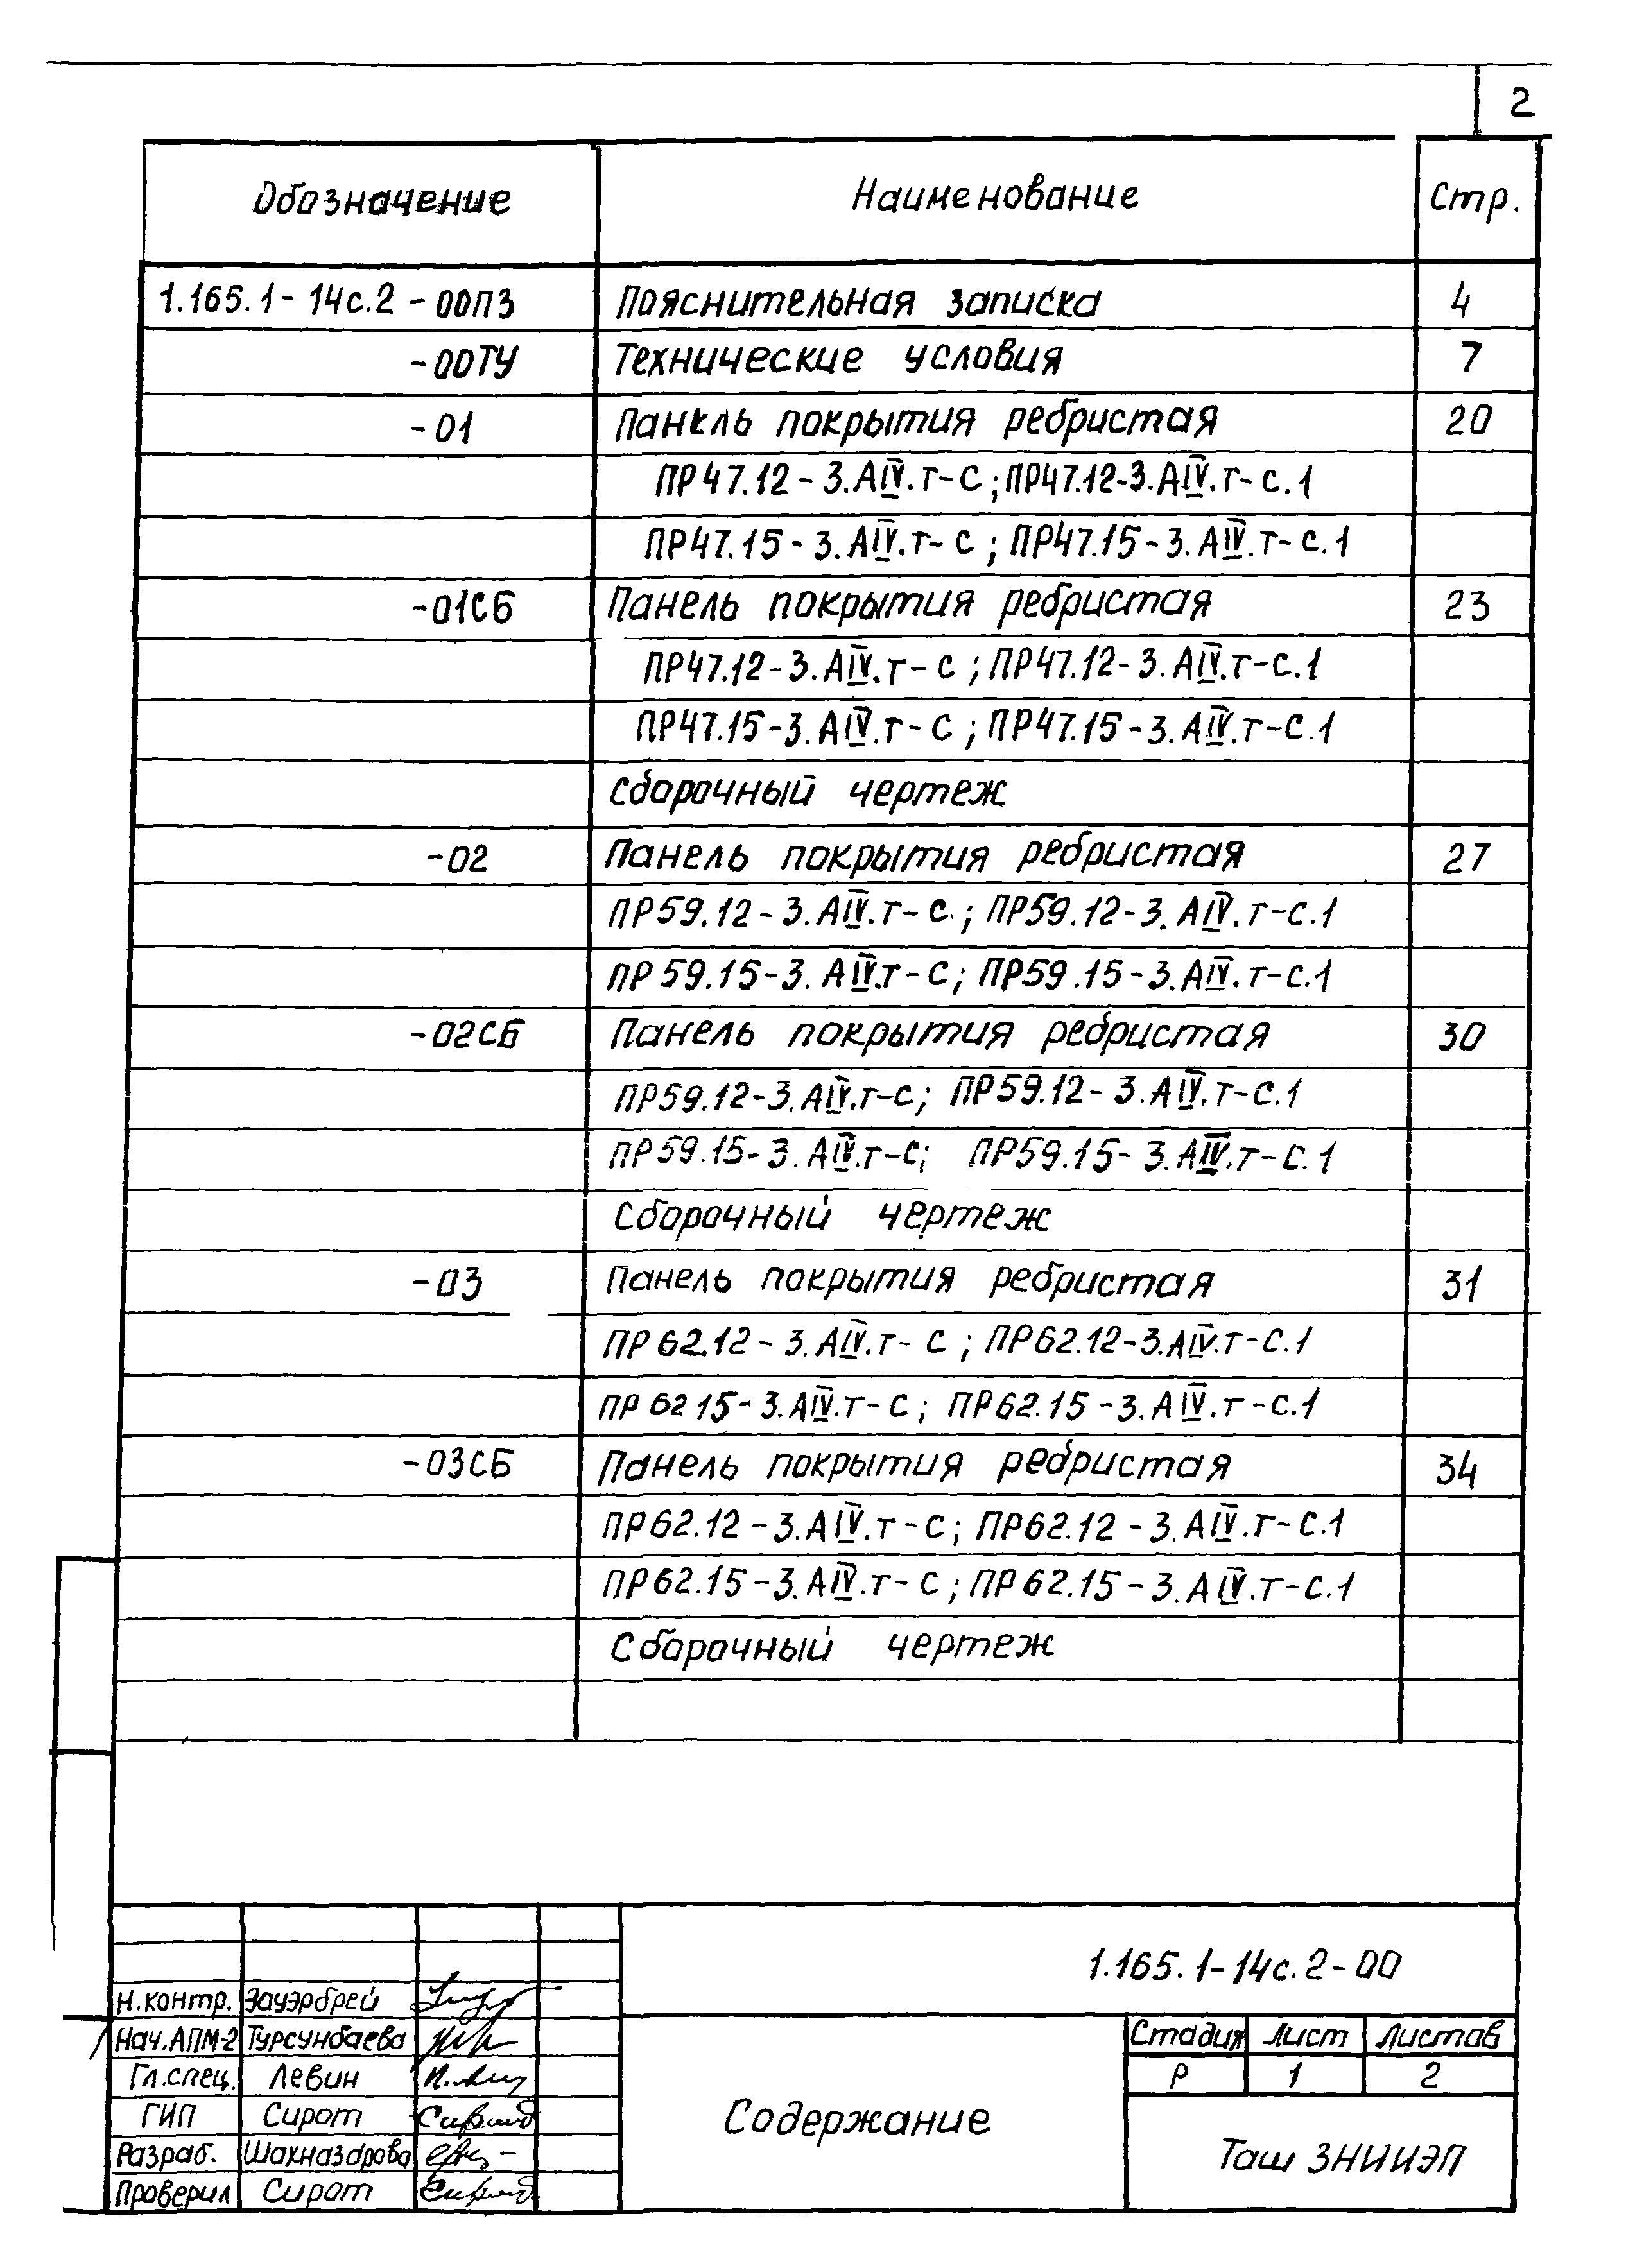 2
Обозначение Наименование Стр.
1.165.1-14с.2-00ПЗ Пояснительная записка 4
-00ТУ Технические условия 7
-01 Панель покрытия ребристая 20
ПР47.12-3.АIV.т-с; ПР47.12-3.АIV.т-с.1
ПР47.15-3.АIV.т-с; ПР47.15-3.АIV.т-с.1
-01СБ Панель покрытия ребристая 23
ПР47.12-3.АIV.т-с; ПР47.12-3.АIV.т-с.1
ПР47.15-3.АIV.т-с; ПР47.15-3.АIV.т-с.1
Сборочный чертеж
-02 Панель покрытия ребристая 27
ПР59.12-3.АIV.т-с; ПР59.12-3.АIV.т-с.1
ПР59.15-3.АIV.т-с; ПР59.15-3.АIV.т-с.1
-02СБ Панель покрытия ребристая 30
ПР59.12-3.АIV.т-с; ПР59.12-3.АIV.т-с.1
ПР59.15-3.АIV.т-с; ПР59.15-3.АIV.т-с.1
Сборочный чертеж
-03 Панель покрытия ребристая 31
ПР62.12-3.АIV.т-с; ПР62.12-3.АIV.т-с.1
ПР62 15-3.АIV.т-с; ПР62.15-3.АIV.т-с.1
-03СБ Панель покрытия ребристая 34
ПР62.12-3.АIV.т-с; ПР62.12-3.АIV.т-с.1
ПР62.15-3.АIV.т-с; ПР62.15-3.АIV.т-с.1
Сборочный чертеж
1.165.1-14с.2-00
Н.контр. Зауэрбрей
Нач.АПМ-2 Турсунбаева
Гл.спец. Левин
ГИП Сирот
Разраб. Шахназарова
Проверил Сирот
Содержание
Стадия Лист Листов
Р 1 2
Таш ЗНИИЭП